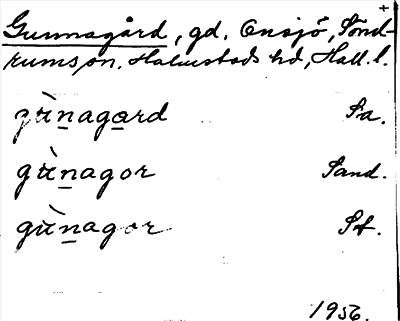 +
Gunnagård, gd. Onsjö, Sönd-
rums sn. Halmstads hd, Hall. l.
gùnagard Sa.
gùnagor Sand.
gùnagor St.
1956.